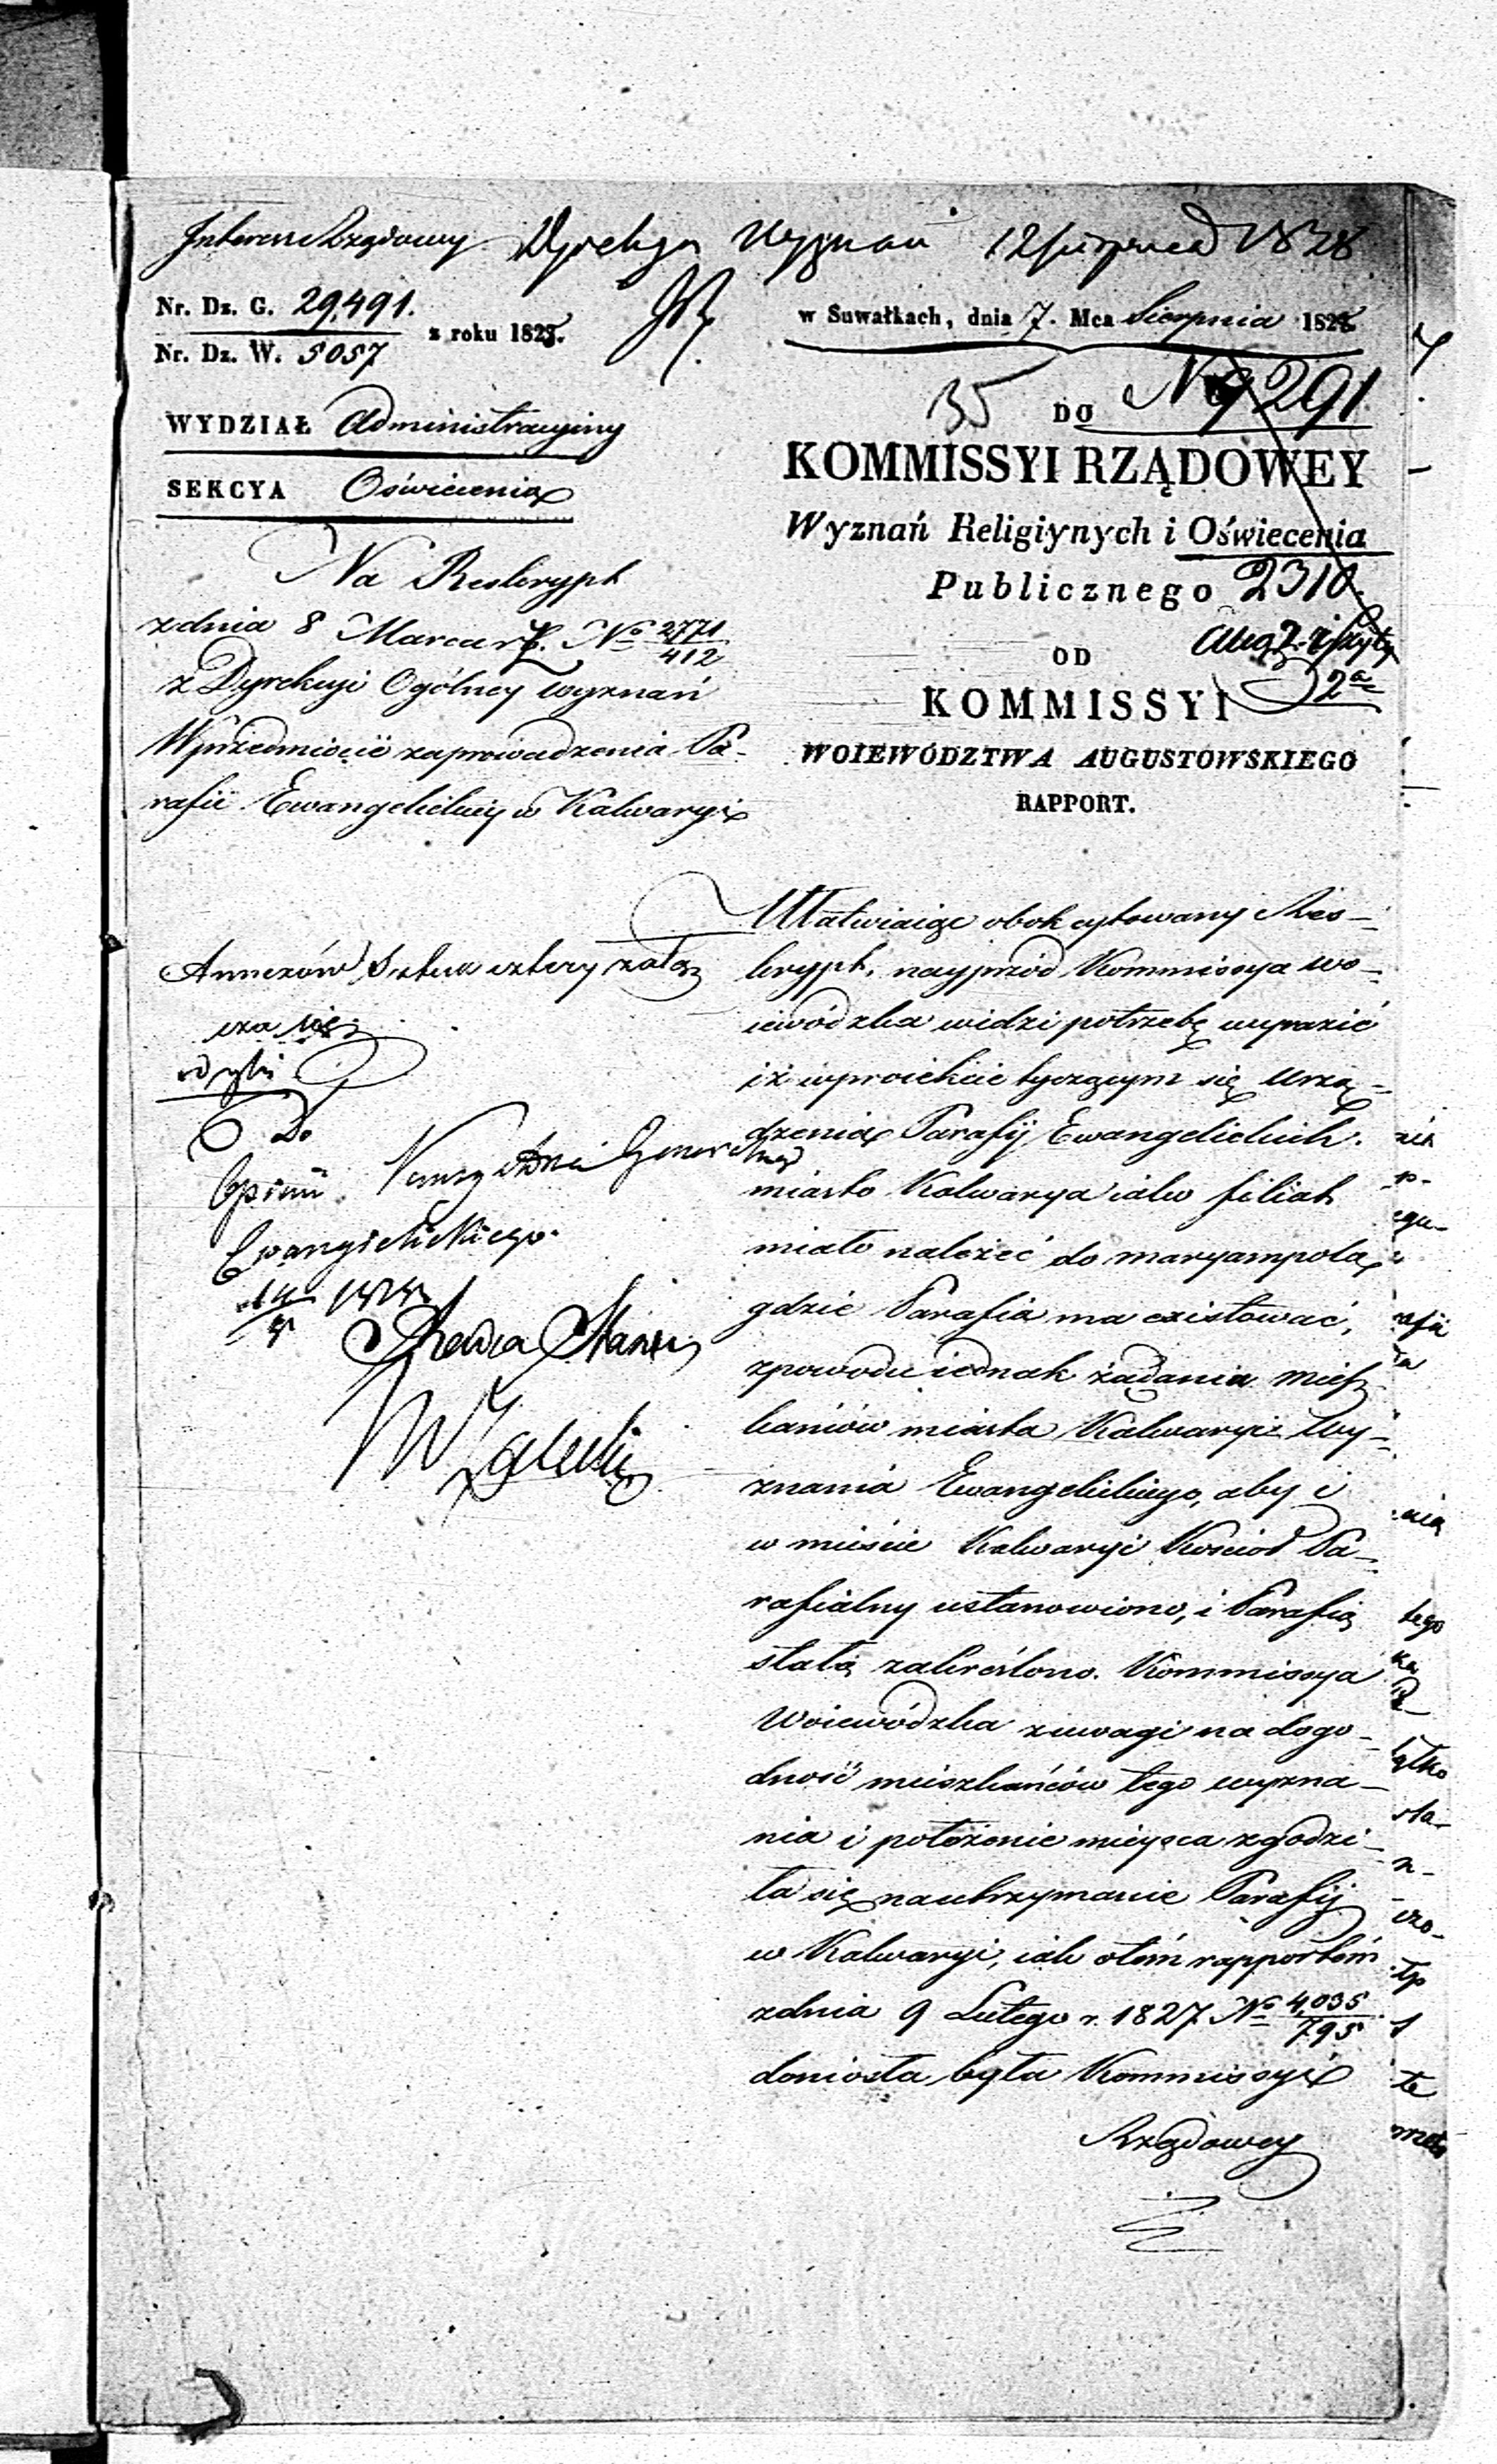 Interess Rządowy Dyrekcya Wyznań 12 Sierpnia 1828
Nr. Dz. G. 29,491.
Nr. Dz. W. 5057
z roku 1828.
w Suwałkach, dnia 7. Mca Sierpnia 1828.
WYDZIAŁ Administracyiny
SEKCYA Oświecenia
35 DO No 9291
KOMMISSYI RZĄDOWEY
Wyznań Religiynych i Oświecenia
Publicznego 2310.
OD
KOMMISSYI
2a
WOIEWÓDZTWA AUGUSTOWSKIEGO
RAPPORT.
Na Reskrypt
z dnia 8 Marca r. b. No 2771/412
z Dyrekcyi Ogólney wyznań
W przedmiocie zaprowadzenia Pa-
rafii Ewangelickiey w Kalwaryi
Annexów Sztuk cztery załą
cza się
Do
Opinii Konsystorza Generalnego
Ewangielickiego
Radca Stanu
Ułatwiaiąc obok cytowany Res-
krypt, nayprzód Kommissya Wo-
iewódzka widzi potrzebę wyrazić
iż w proiekcie tyczącym się urzą-
dzenia Parafij Ewangelickich.
miasto Kalwarya iako filiał
miało należeć do Maryampola
gdzie Parafia ma existować,
z powodu iednak żądania miesz
kańców miasta Kalwaryi Wy-
znania Ewangelickiego, aby i
w mieście Kalwaryi Kościoł Pa-
rafialny ustanowiono, i Parafią
stałą zakreślono. Kommissya
Woiewódzka z uwagi na dogo-
dność mieszkańców tego wyzna-
nia i położenie mieysca zgodzi-
ła się na utrzymanie Parafij
w Kalwaryi, iak o tém rapportem
z dnia 9 Lutego r. 1827 No 4,035/795
doniosła była Kommissyi
Rządowey